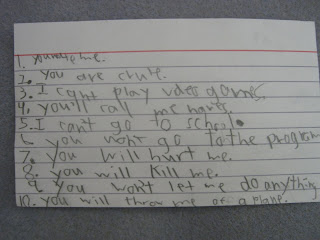 1. you hate me.
2. you are crule.
3. I cant play video games.
4. you'll call me names.
5. I can't go to school.
6. you wont go to the program
7. you will hurt me.
8. you will kill me.
9. you won't let me do anything
10. you will throw me of a plane.